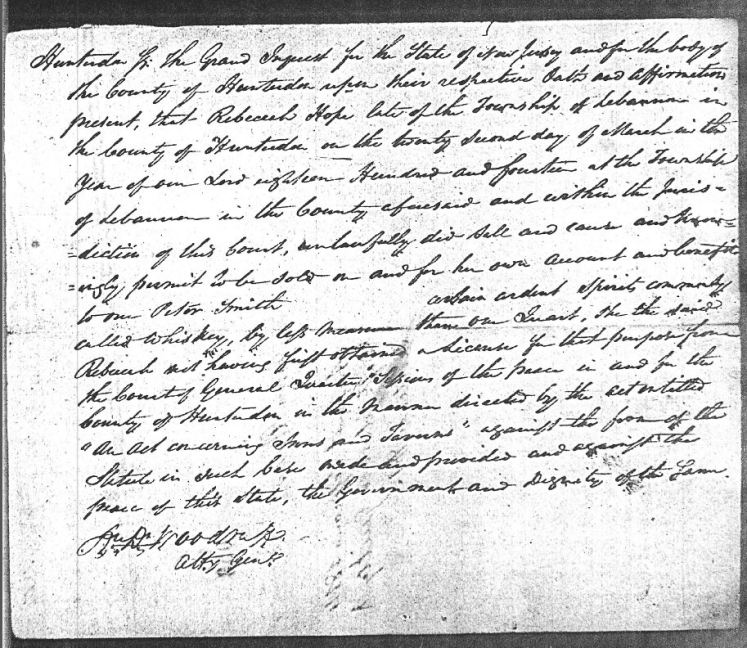 Hunterdon Ss. The Grand Inquest for the State of New Jersey and for the body of
the County of Hunterdon upon their respective Oaths and affirmations
present, that Rebecah Hope late of the Township of Lebannon in
the County of Hunterdon on the twenty second day of March in the
Year of our Lord eighteen Hundred and fourteen at the Township
of Lebannon in the County aforesaid and within the Juris=
=diction of this Court, unlawfully did sell and cause and know=
=ingly permit to be sold on and for her own account and benefit
to one Peter Smith certain ardent spirits commonly
called Whiskey, by less measure than one Quart, she the said
Rebecah not having first obtained a License for that purpose from
the Court of General Quarter Sessions of the Peace in and for the
County of Hunterdon in the manner directed by the act entitled
"An Act concerning Inns and Taverns" against the form of the
Statute in such Case made and provided and against the
peace of this State, the Government and Dignity of the Same.
Woodruff
Atty Genl.